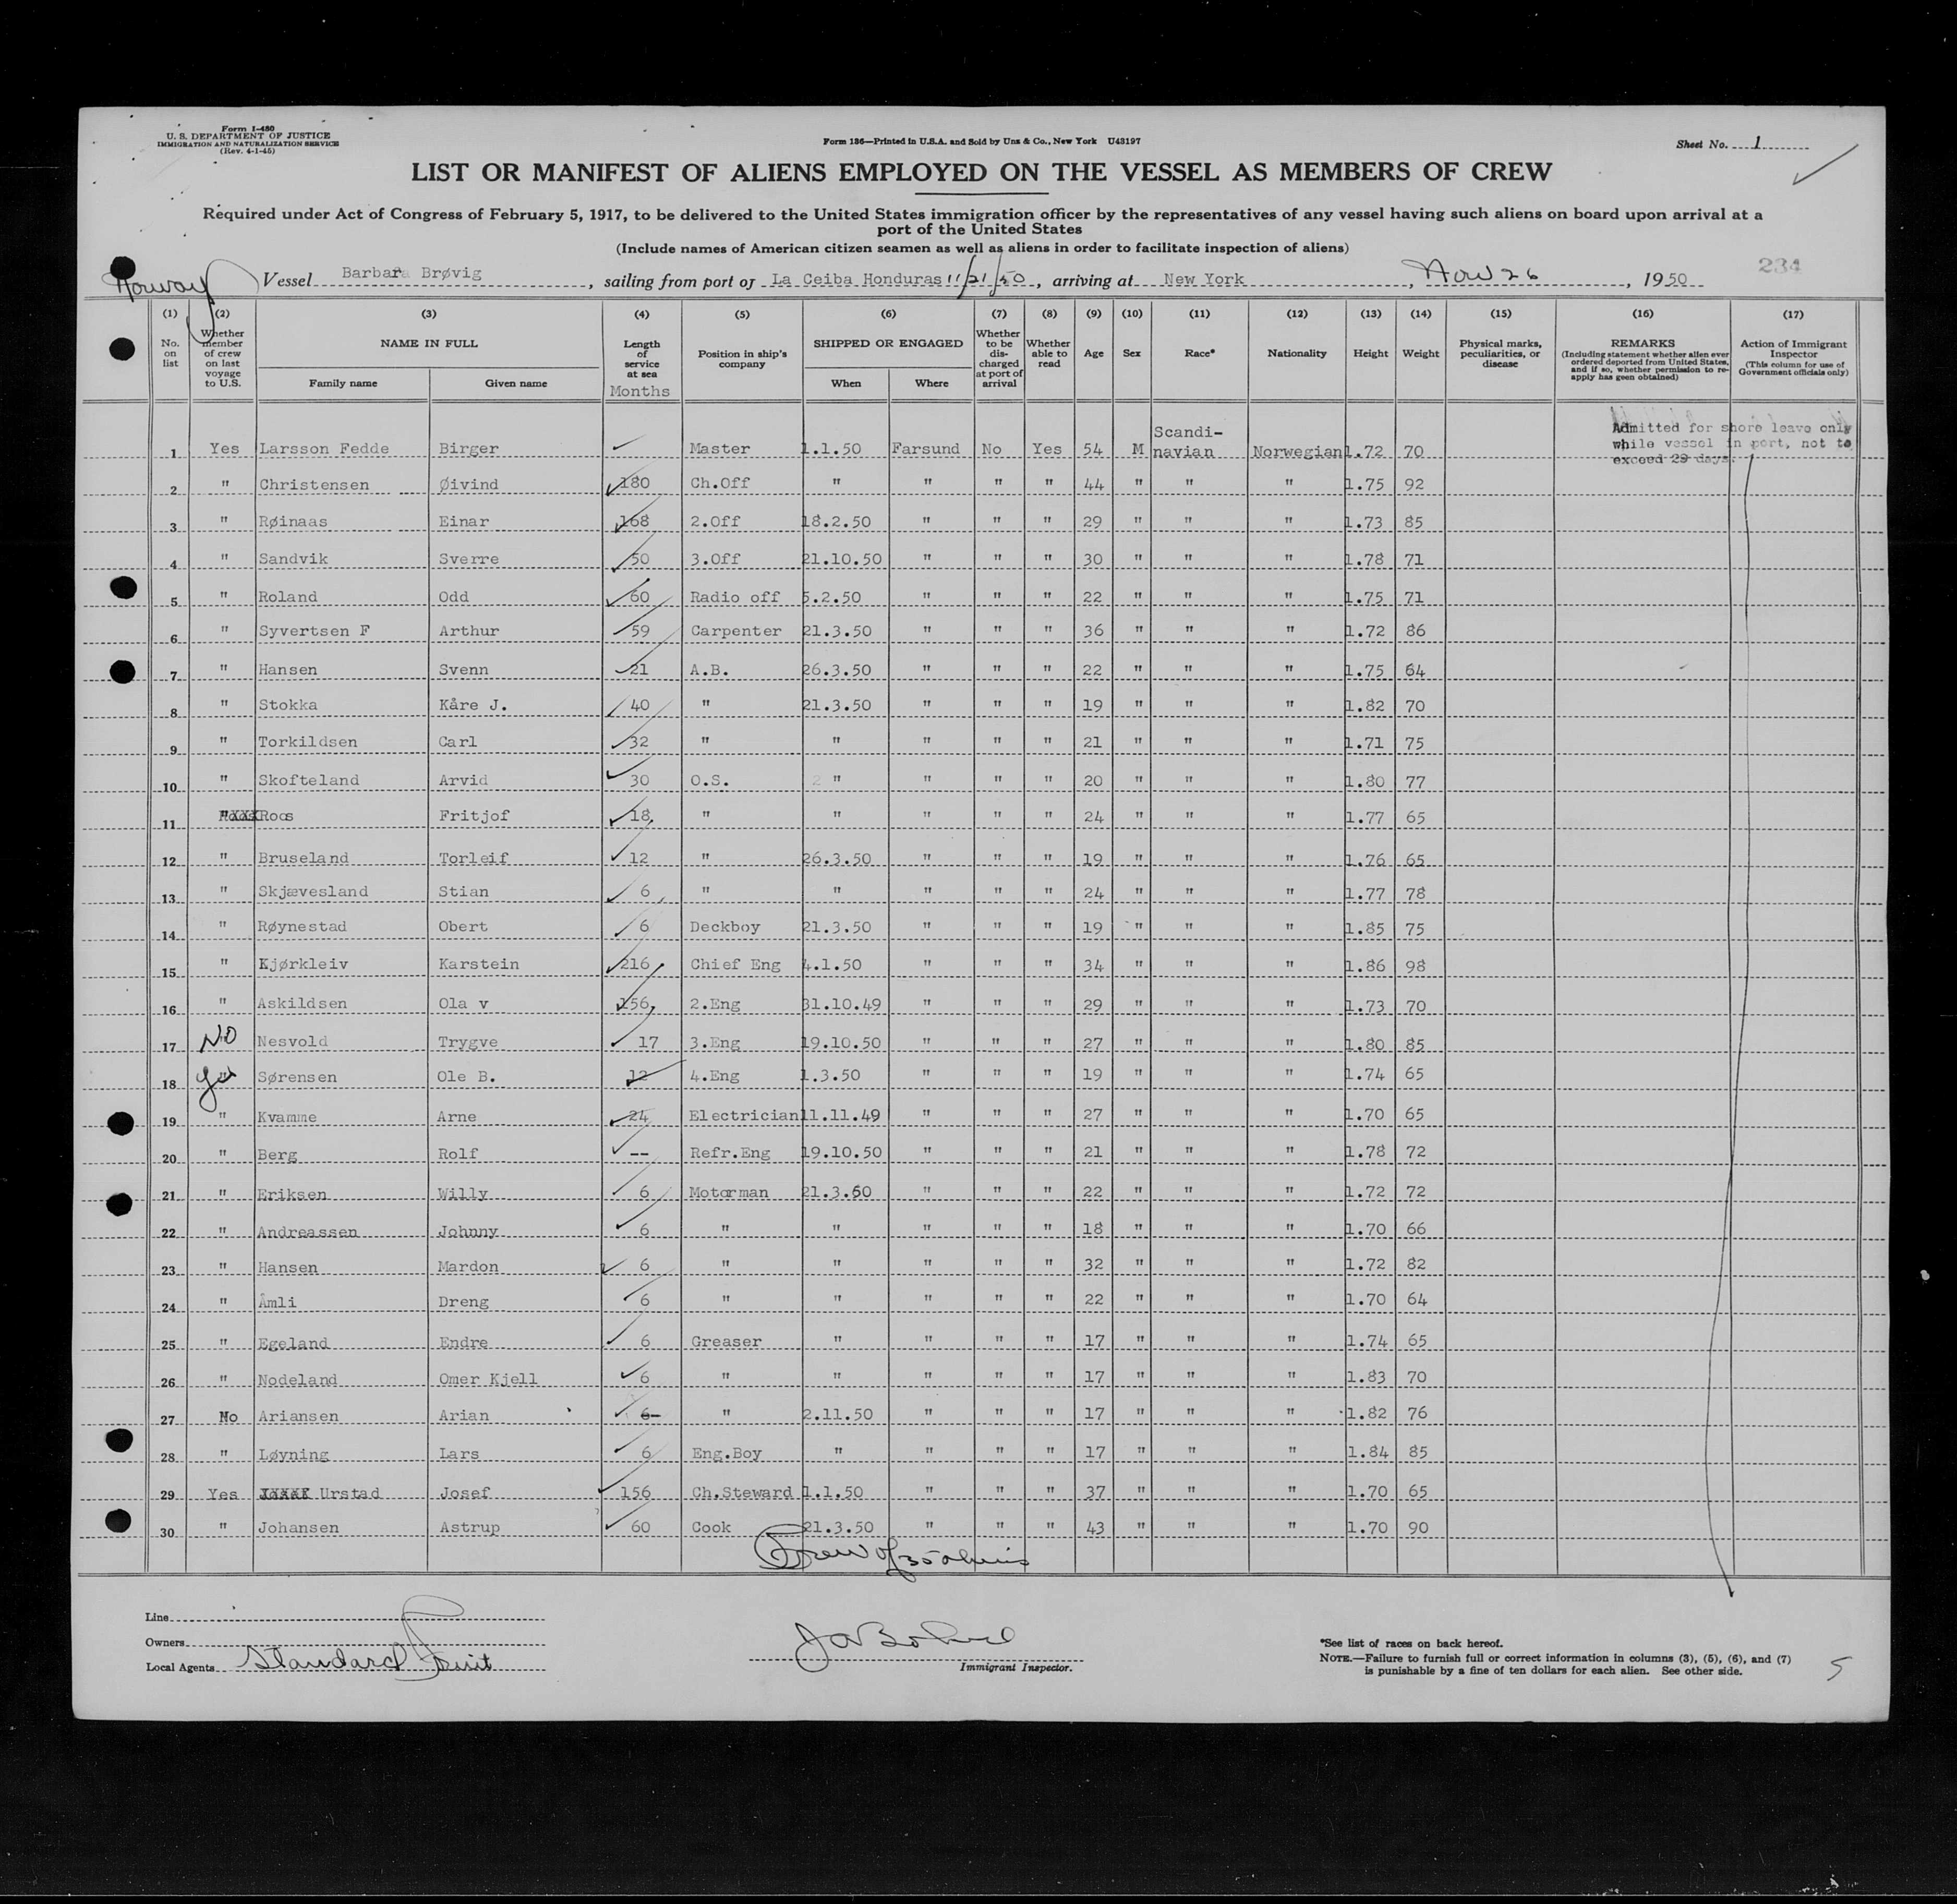 Form I-480
U. S. DEPARTMENT OF JUSTICE
IMMIGRATION AND NATURALIZATION SERVICE
(Rev. 4-1-45)
Form 136—Printed in U.S.A. and Sold by Unz & Co., New York U43197
Sheet No. 1
LIST OR MANIFEST OF ALIENS EMPLOYED ON THE VESSEL AS MEMBERS OF CREW
Required under Act of Congress of February 5, 1917, to be delivered to the United States immigration officer by the representatives of any vessel having such aliens on board upon arrival at a
port of the United States
(Include names of American citizen seamen as well as aliens in order to facilitate inspection of aliens)
234
Norway Vessel Barbara Brøvig , sailing from port of La Ceiba Honduras 11/21/50 , arriving at New York , Nov 26 , 1950
(1) (2) (3) (4) (5) (6) (7) (8) (9) (10) (11) (12) (13) (14) (15) (16) (17)
No. on list
Whether member of crew on last voyage to U.S.
NAME IN FULL
Family name Given name
Length of service at sea
Months
Position in ship's company
SHIPPED OR ENGAGED
When Where
Whether to be discharged at port of arrival
Whether able to read
Age
Sex
Race*
Nationality
Height
Weight
Physical marks, peculiarities, or disease
REMARKS
(Including statement whether alien ever ordered deported from United States, and if so, whether permission to reapply has geen obtained)
Action of Immigrant Inspector
(This column for use of Government officials only)
Admitted for shore leave only
while vessel in port, not to
exceed 29 days.
1 Yes Larsson Fedde Birger Master 1.1.50 Farsund No Yes 54 M Scandi-navian Norwegian 1.72 70
2 " Christensen Øivind 180 Ch.Off " " " " 44 " " " 1.75 92
3 " Røinaas Einar 168 2.Off 18.2.50 " " " 29 " " " 1.73 85
4 " Sandvik Sverre 50 3.Off 21.10.50 " " " 30 " " " 1.78 71
5 " Roland Odd 60 Radio off 5.2.50 " " " 22 " " " 1.75 71
6 " Syvertsen F Arthur 59 Carpenter 21.3.50 " " " 36 " " " 1.72 86
7 " Hansen Svenn 21 A.B. 26.3.50 " " " 22 " " " 1.75 64
8 " Stokka Kåre J. 40 " 21.3.50 " " " 19 " " " 1.82 70
9 " Torkildsen Carl 32 " " " " " 21 " " " 1.71 75
10 " Skofteland Arvid 30 O.S. " " " " 20 " " " 1.80 77
11 " Roos Fritjof 18 " " " " " 24 " " " 1.77 65
12 " Bruseland Torleif 12 " 26.3.50 " " " 19 " " " 1.76 65
13 " Skjævesland Stian 6 " " " " " 24 " " " 1.77 78
14 " Røynestad Obert 6 Deckboy 21.3.50 " " " 19 " " " 1.85 75
15 " Kjørkleiv Karstein 216 Chief Eng 4.1.50 " " " 34 " " " 1.86 98
16 " Askildsen Ola v 156 2.Eng 31.10.49 " " " 29 " " " 1.73 70
17 No Nesvold Trygve 17 3.Eng 19.10.50 " " " 27 " " " 1.80 85
18 Yes Sørensen Ole B. 12 4.Eng 1.3.50 " " " 19 " " " 1.74 65
19 " Kvamme Arne 24 Electrician 11.11.49 " " " 27 " " " 1.70 65
20 " Berg Rolf -- Refr.Eng 19.10.50 " " " 21 " " " 1.78 72
21 " Eriksen Willy 6 Motorman 21.3.60 " " " 22 " " " 1.72 72
22 " Andreassen Johnny 6 " " " " " 18 " " " 1.70 66
23 " Hansen Mardon 6 " " " " " 32 " " " 1.72 82
24 " Åmli Dreng 6 " " " " " 22 " " " 1.70 64
25 " Egeland Endre 6 Greaser " " " " 17 " " " 1.74 65
26 " Nodeland Omer Kjell 6 " " " " " 17 " " " 1.83 70
27 No Ariansen Arian 6 " 2.11.50 " " " 17 " " " 1.82 76
28 " Løyning Lars 6 Eng.Boy " " " " 17 " " " 1.84 85
29 Yes Urstad Josef 156 Ch.Steward 1.1.50 " " " 37 " " " 1.70 65
30 " Johansen Astrup 60 Cook 21.3.50 " " " 43 " " " 1.70 90
Crew of 35 aliens
Line
Owners
Local Agents Standard Fruit
Immigrant Inspector.
*See list of races on back hereof.
NOTE.—Failure to furnish full or correct information in columns (3), (5), (6), and (7)
is punishable by a fine of ten dollars for each alien. See other side.
5